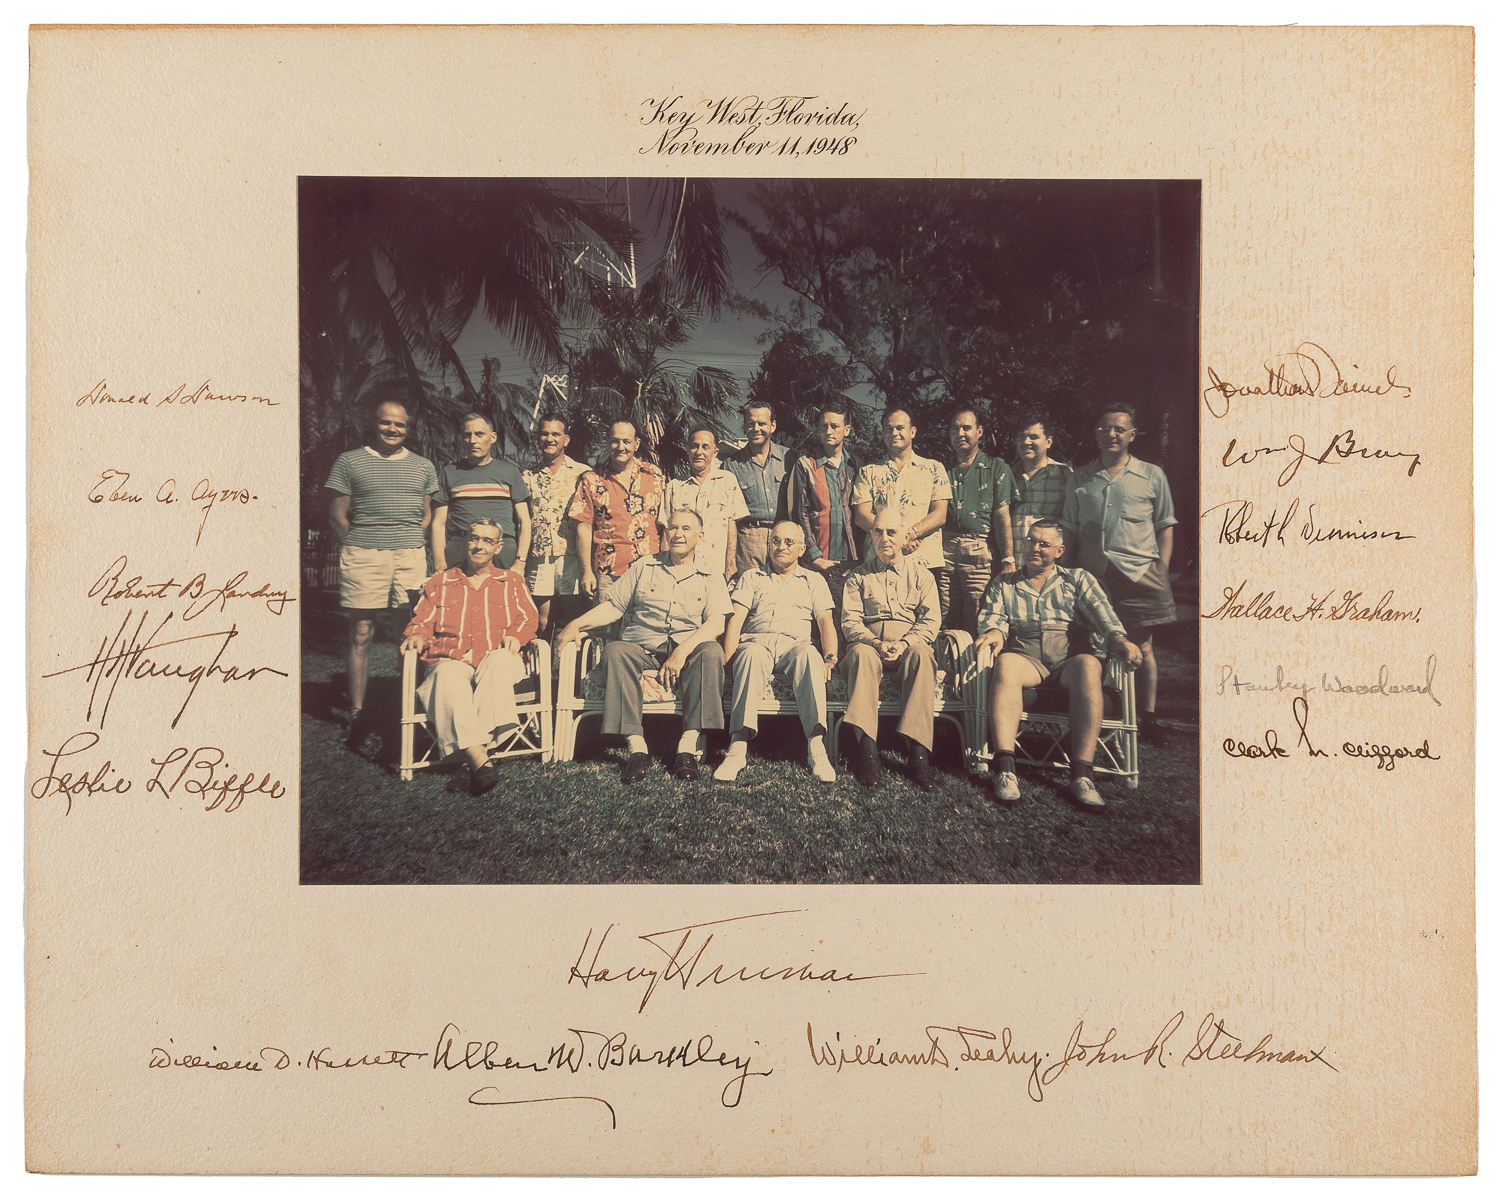 Key West, Florida,
November 11, 1948
Donald S Dawson
Eben A. Ayers.
Robert B Landry
H H Vaughan
Leslie L Biffle
Jonathan Daniels
Wm J Bray
Robert L Dennison
Wallace H. Graham.
Stanley Woodward
Clark M. Clifford
Harry S Truman
William D. Hassett Alben W. Barkley William D. Leahy. John R. Steelman